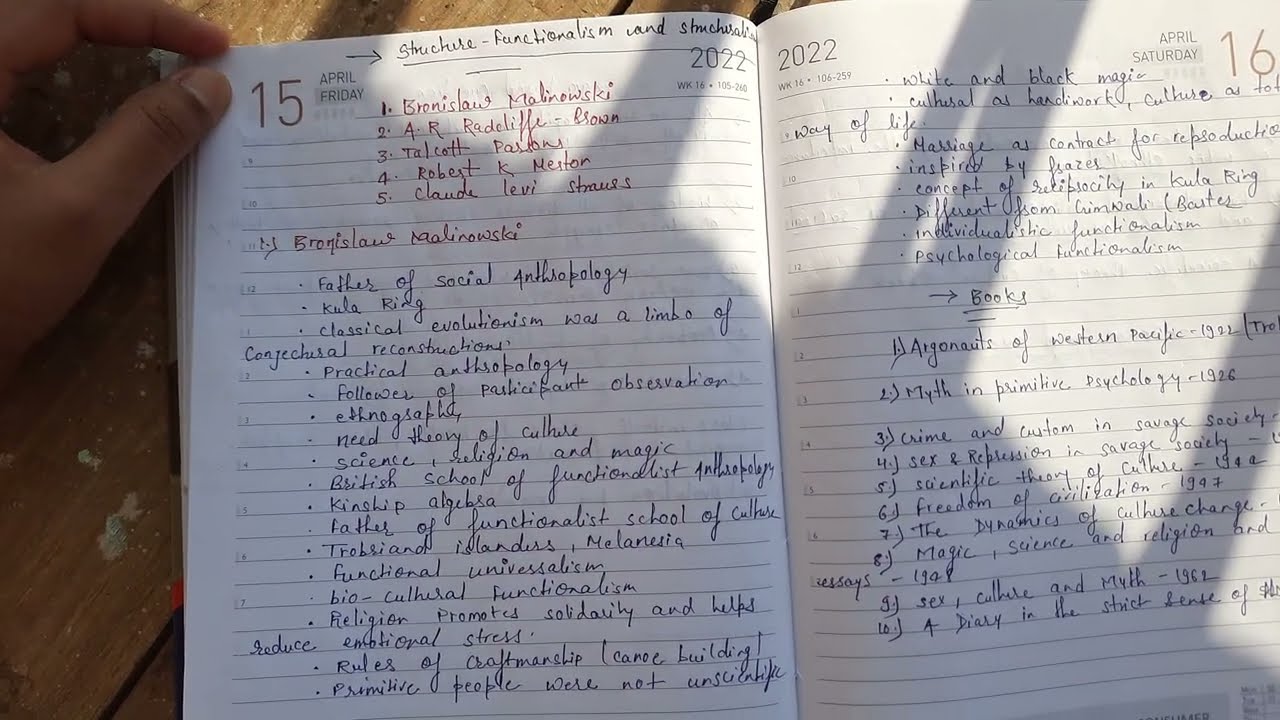 → Structure-Functionalism and structurali
15
APRIL
FRIDAY
2022
WK 16 • 105-260
1. Bronislaw Malinowski
2. A. R Radcliffe-Brown
3. Talcott Parsons
4. Robert K Merton
5. Claude levi strauss
1.) Bronislaw Malinowski
• Father of social Anthropology
• Kula Ring
• classical evolutionism was a limbo of
Conjectural reconstructions.
• Practical anthropology
• Follower of Participant observation
• ethnography
• need theory of culture
• science, religion and magic
• British school of functionalist Anthropology
• Kinship algebra
• Father of functionalist school of culture
• Trobriand islanders, Melanesia
• Functional universalism
• bio-cultural Functionalism
• Religion Promotes solidarity and helps
reduce emotional stress.
• Rules of craftmanship (canoe building)
• Primitive people were not unscientific
2022
WK 16 • 106-259
APRIL
SATURDAY
16
• White and black magic
• cultural as handiwork, culture as tot
way of life.
• Marriage as contract for reproductio
• inspired by frazer
• concept of reciprocity in Kula Ring
• Different from Gimwali (Barter
• individualistic functionalism
• Psychological Functionalism
→ Books
1.) Argonauts of western Pacific-1922 (Tro
2.) Myth in primitive Psychology-1926
3.) crime and custom in savage society-
4.) sex & Repression in savage society -
5.) scientific theory of culture -
6.) freedom of civilization - 1947
7.) The Dynamics of culture change -
8.) Magic, science and religion and
essays - 1948
9.) sex, culture and Myth - 1962
10.) A Diary in the strict sense of